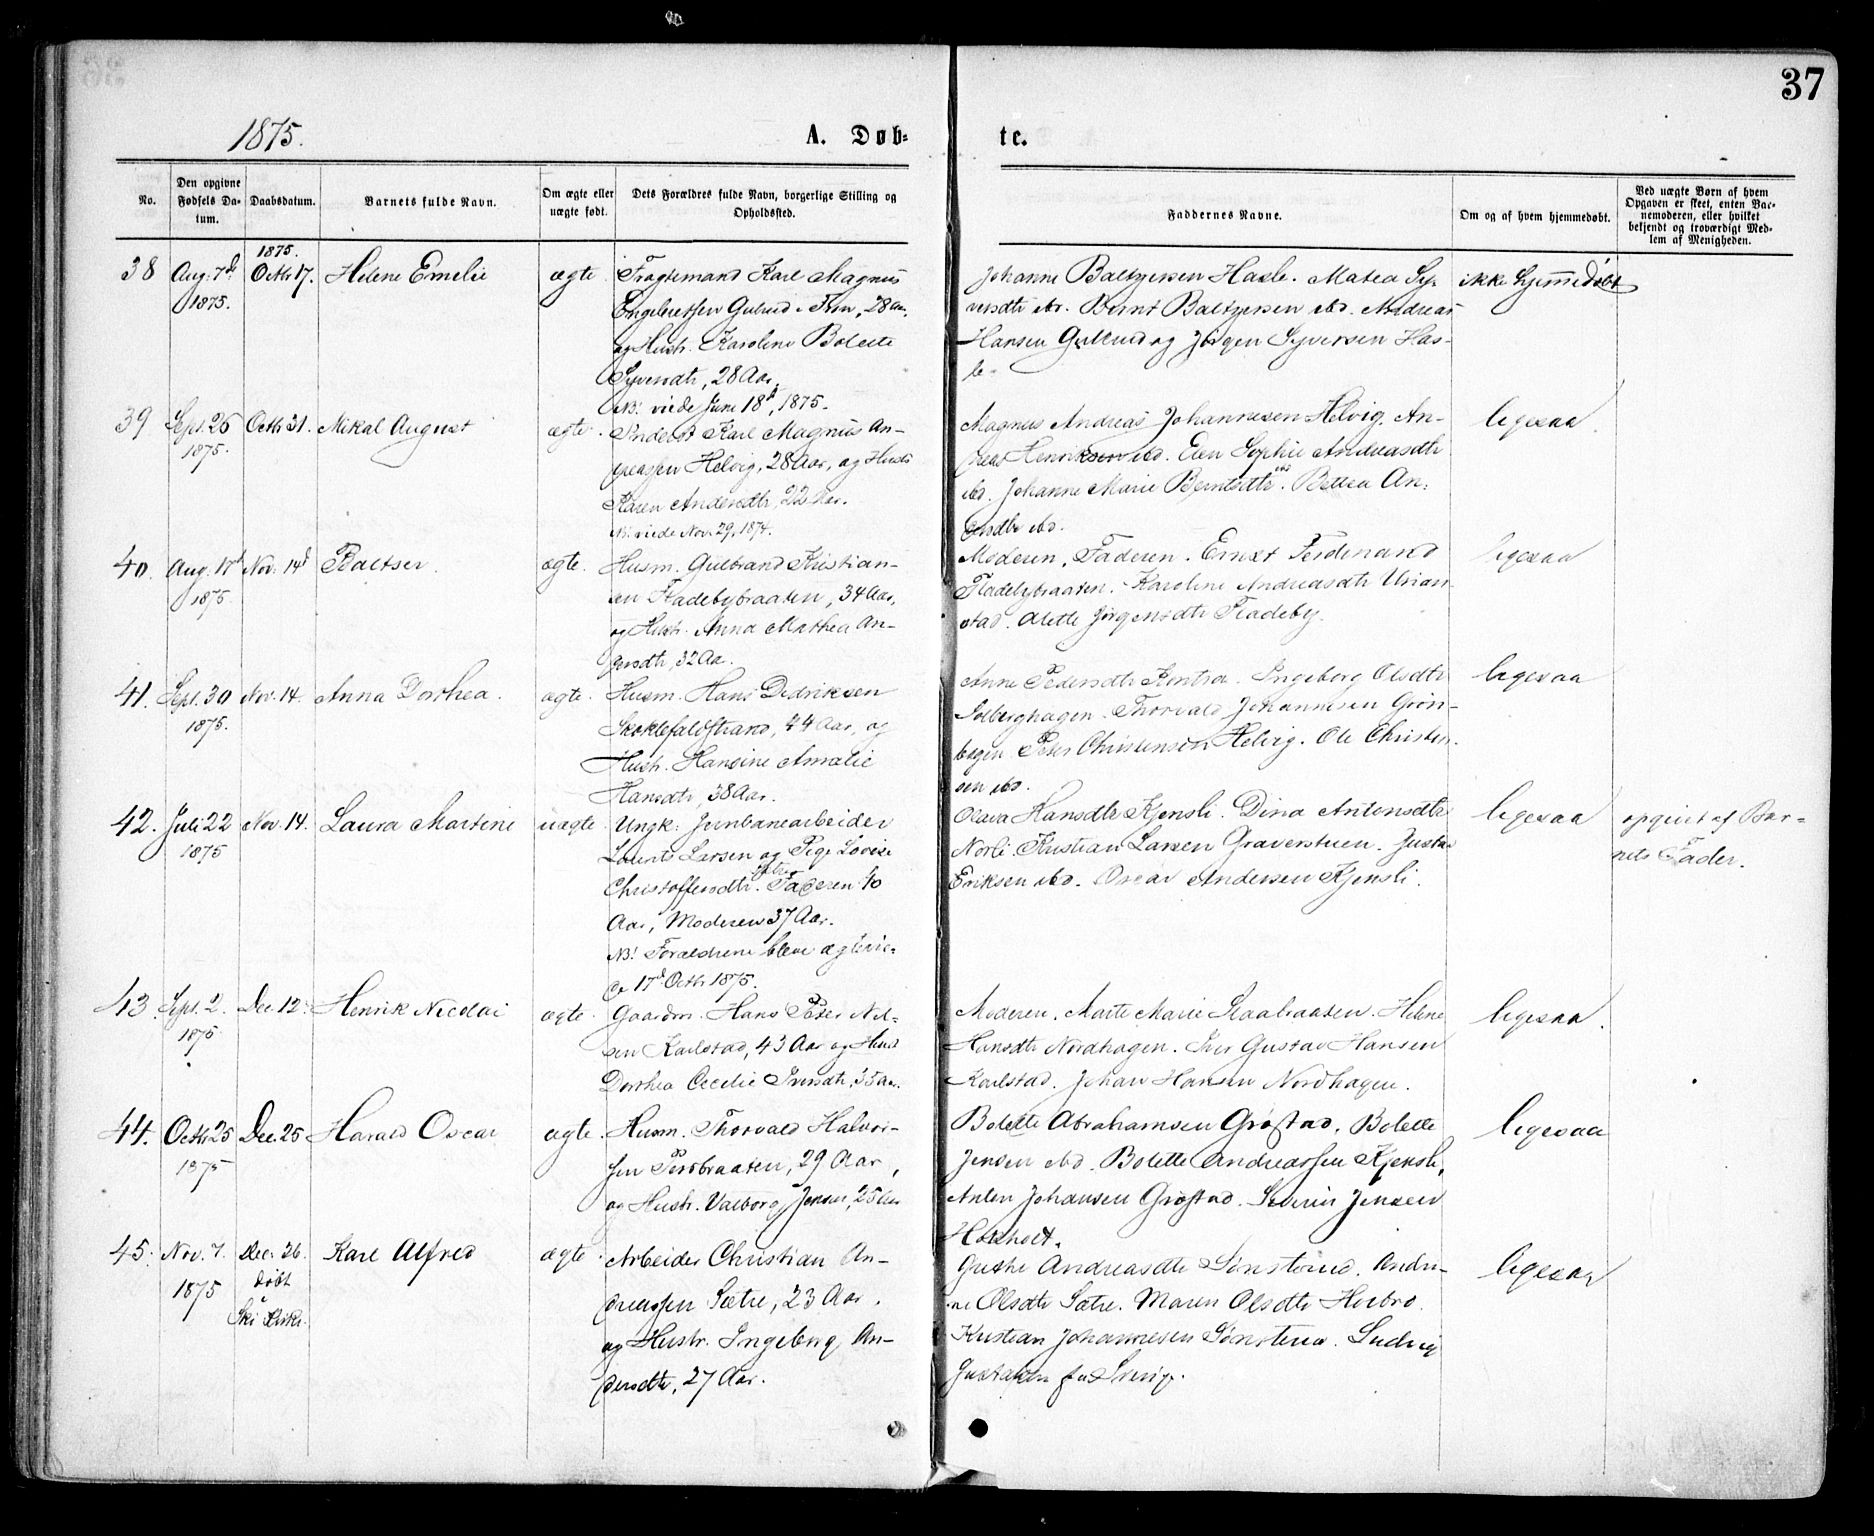 37
1875.
A. Døb-
te.
No.
Den opgivne Fødsels Da-tum.
Daabsdatum.
Barnets fulde Navn.
Om ægte eller uægte født.
Dets Forældres fulde Navn, borgerlige Stilling og Opholdssted.
Faddernes Navne.
Om og af hvem hjemmedøbt.
Ved uægte Børn af hvem Opgaven er skeet, enten Bar-nemoderen, eller hvilket bekjendt og troværdigt Med-lem af Menigheden.
38
Aug. 7de
1875.
1875.
Octbr 17.
Helene Emelie
ægte
Fragtemand Karl Magnus
Engebretsen Gulrud, 28 Aar,
og Hustr. Karoline Bolette
Syversdtr, 28 Aar.
NB! viede June 18de, 1875.
Johanne Baltzersen Hasle. Matea Sy-
versdtr ibd. Bernt Baltzersen ibd. Andreas
Hansen Gulrud og Jörgen Syversen Has-
le.
ikke hjemmedøbt
39
Sept. 26
1875.
Octbr 31.
Mikal August
ægte.
Inderst Karl Magnus An-
dreassen Helvig, 28 Aar, og Hustr
Karen Andersdtr, 22 Aar.
NB! viede Nov. 29, 1874.
Magnus Andreas Johannesen Helvig. An-
dreas Henriksen ibd. Elen Sophie Andreasdtr
ibd. Johanne Marie Berntsdtr ibd. Bettea An-
dersdtr ibd.
ligesaa.
40.
Aug. 17d
1875.
Nov. 14d
Baltser.
ægte.
Husm. Gulbrand Kristian-
sen Fladebybraaten, 34 Aar,
og Hustr. Anna Mathea An-
dersdtr, 32 Aar.
Moderen. Faderen. Ernst Ferdinand
Fladebybraaten. Karoline Andreasdtr Unian-
stad. Alette Jörgensdtr Fladeby.
ligesaa
41.
Sept. 30
1875.
Nov. 14.
Anna Dorthea.
ægte.
Husm. Hans Dedriksen
Skoklefaldstrand, 44 Aar, og
Hustr. Hansine Amalie
Hansdtr, 38 Aar.
Anne Pedersdtr Kontra. Ingeborg Olsdtr
Solberghagen. Thorvald Johannesen Grön-
hagen. Peter Christensen Helvig. Ole Christen-
sen ibd.
ligesaa
42.
Juli 22
1875
Nov. 14.
Laura Martine
uægte.
Ungk: Jernbanearbeider
Laurits Larsen og Pige Lovise
Christoffersdtr. Faderen 40
Aar, Moderen 37 Aar.
NB! Forældrene bleve ægtevie-
de 17d Octbr 1875.
Olava Hansdtr Kjensli. Dina Antonsdtr
Norli. Kristian Larsen Graverstuen. Gustav
Eriksen ibd. Oscar Andersen Kjensli.
ligesaa
opgivet af Bar-
nets Fader.
43.
Sept. 2.
1875.
Dec. 12.
Henrik Nicolai
ægte.
Gaardm. Hans Peter Nil-
sen Karlstad, 43 Aar og Hustr
Dorthea Cecilie Iversdtr, 35 Aar.
Moderen. Marte Marie Staabraaten. Helene
Hansdtr Nordhagen. Iver Gustav Hansen
Karlstad. Johan Hansen Nordhagen.
ligesaa.
44.
Octbr 25
1875
Dec. 25
Harald Oscar
ægte.
Husm. Thorvald Halvor-
sen Persbraaten, 29 Aar,
og Hustr. Valborg Jensen, 25 Aar
Bolette Abrahamsen Gröstad. Bolette
Jensen ibd. Bolette Andreassen Kjensli,
Anten Johansen Gröstad. Severin Jensen
Haxholt.
ligesaa
45.
Nov. 7.
1875
Dec. 26.
døbt
i
Ski Kirke.
Karl Alfred
ægte.
Arbeider Christian An-
dreassen Sætre, 23 Aar,
og Hustr. Ingeborg An-
dersdtr, 27 Aar.
Gusta Andreasdtr Sönsterud. Andri-
ne Olsdtr Sætre. Maren Olsdtr Hesbro.
Kristian Johannesen Sönsterud. Ludvig
Gustavsen fra Sverige.
ligesaa